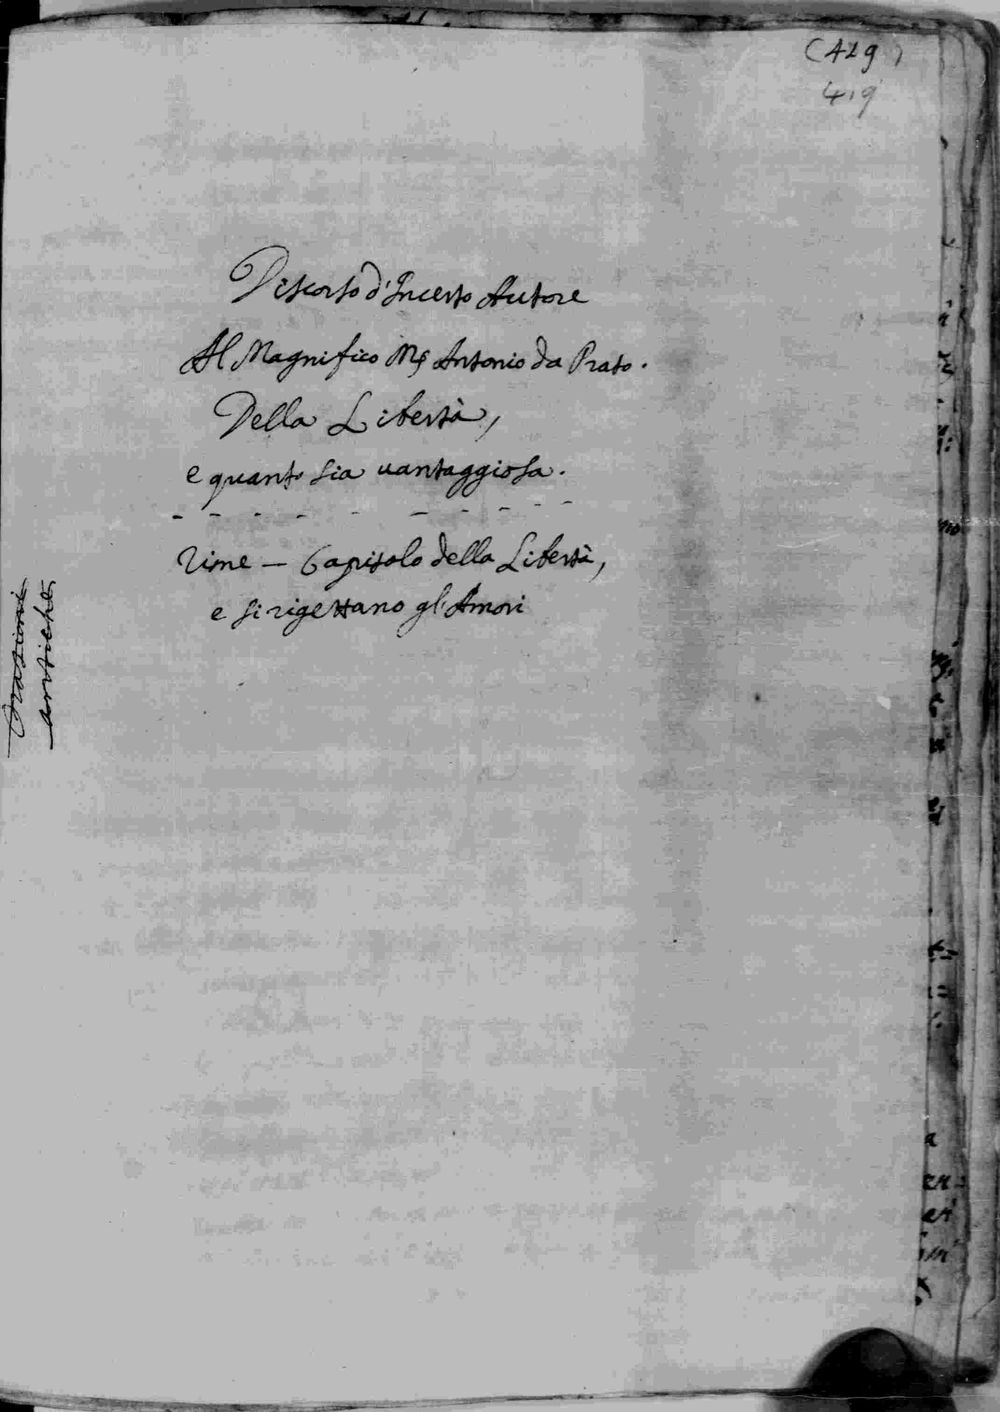 (419)
419
Discorso d'Incerto Autore
Al Magnifico Ms Antonio da Prato.
Della Libertà,
e quanto sia uantaggiosa.
Rime — Capitolo della Libertà,
e si rigettano gl'Amori
Orazioni
antiche